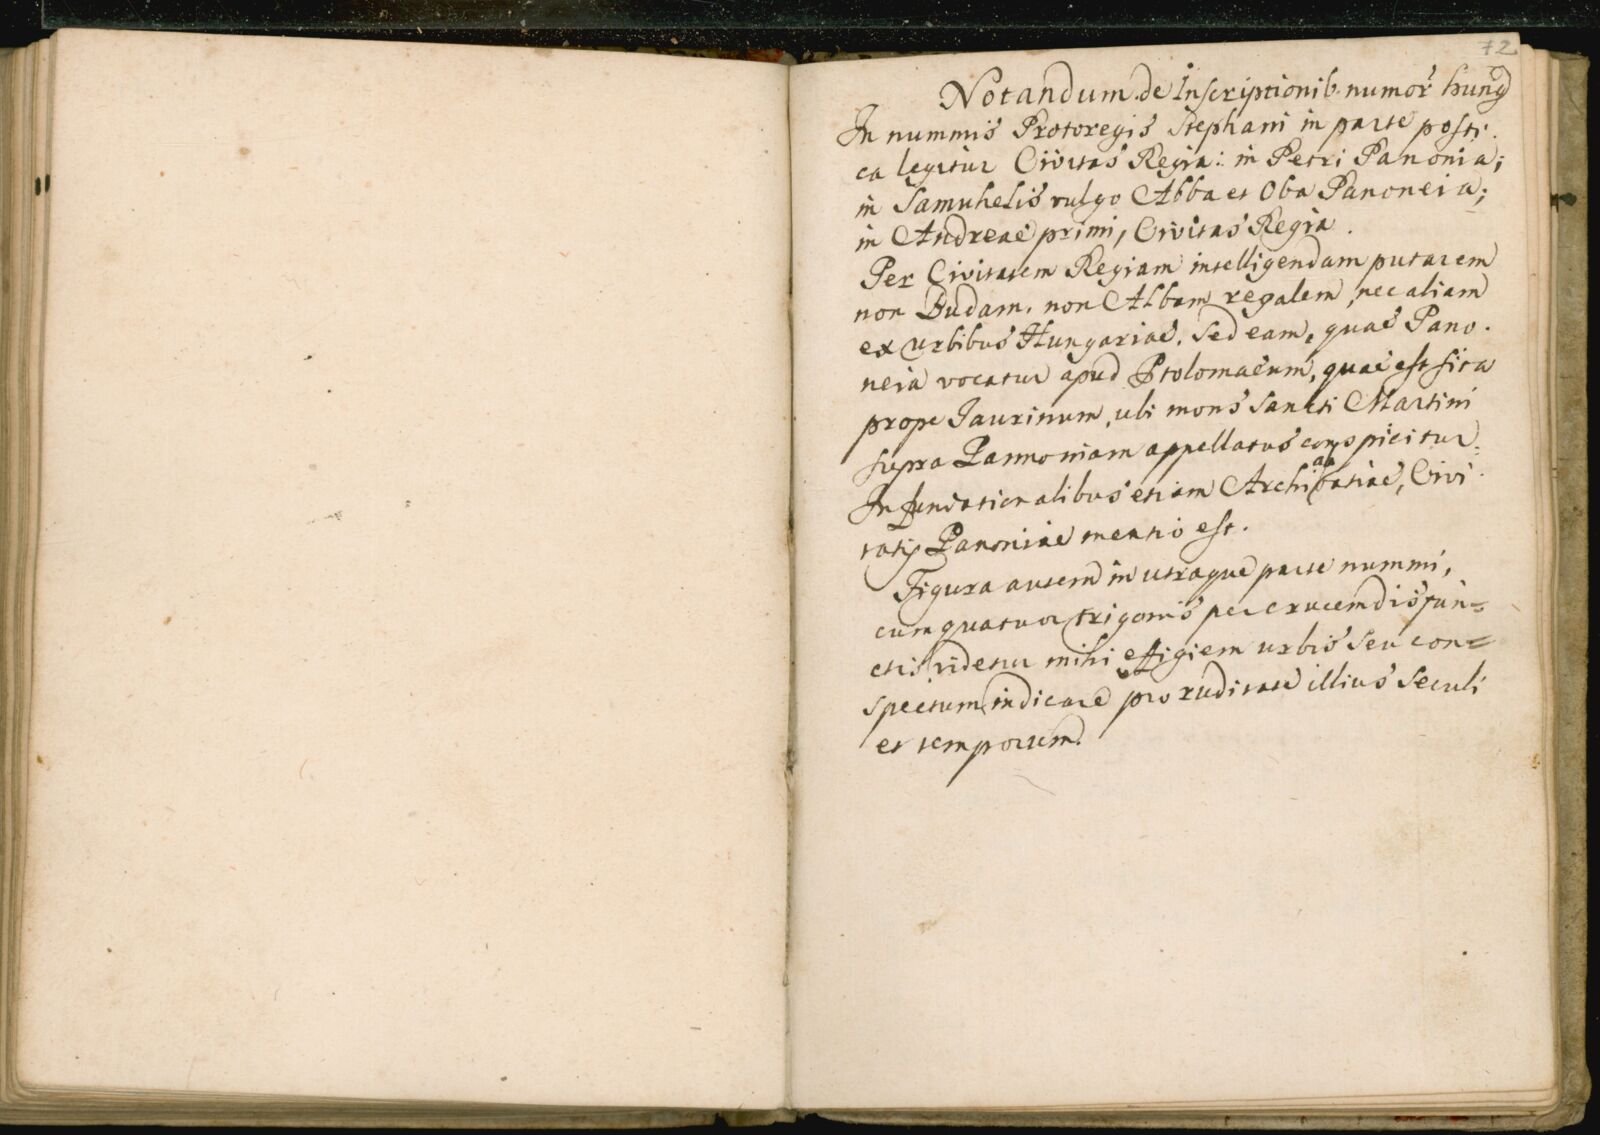 72
Notandum de Inscriptionib. numor. hung
In nummis Protoregis Stephani in parte posti.
ca legitur Civitas Regia: in Petri Panonia;
in Samuhelis vulgo Abba et Oba Panoneia;
in Andreae primi, Civitas Regia.
Per Civitatem Regiam intelligendam putarem
non Budam, non Albam regalem, nec aliam
ex urbibus Hungariae, sed eam, quae Pano.
neia vocatur apud Ptolomaeum, quae est sita
prope Jaurinum, ubi mons Sancti Martini
supra Pannoniam appellatus conspicitur.
In fundationalibus etiam Archiabbatiae, Civi
tatis Panoniae mentio est.
Figura autem in utraque parte nummi,
cum quatuor trigonis per crucem disjun=
ctis, videtur mihi effigiem urbis seu con=
spectum indicare pro ruditate illius Seculi
et temporum.